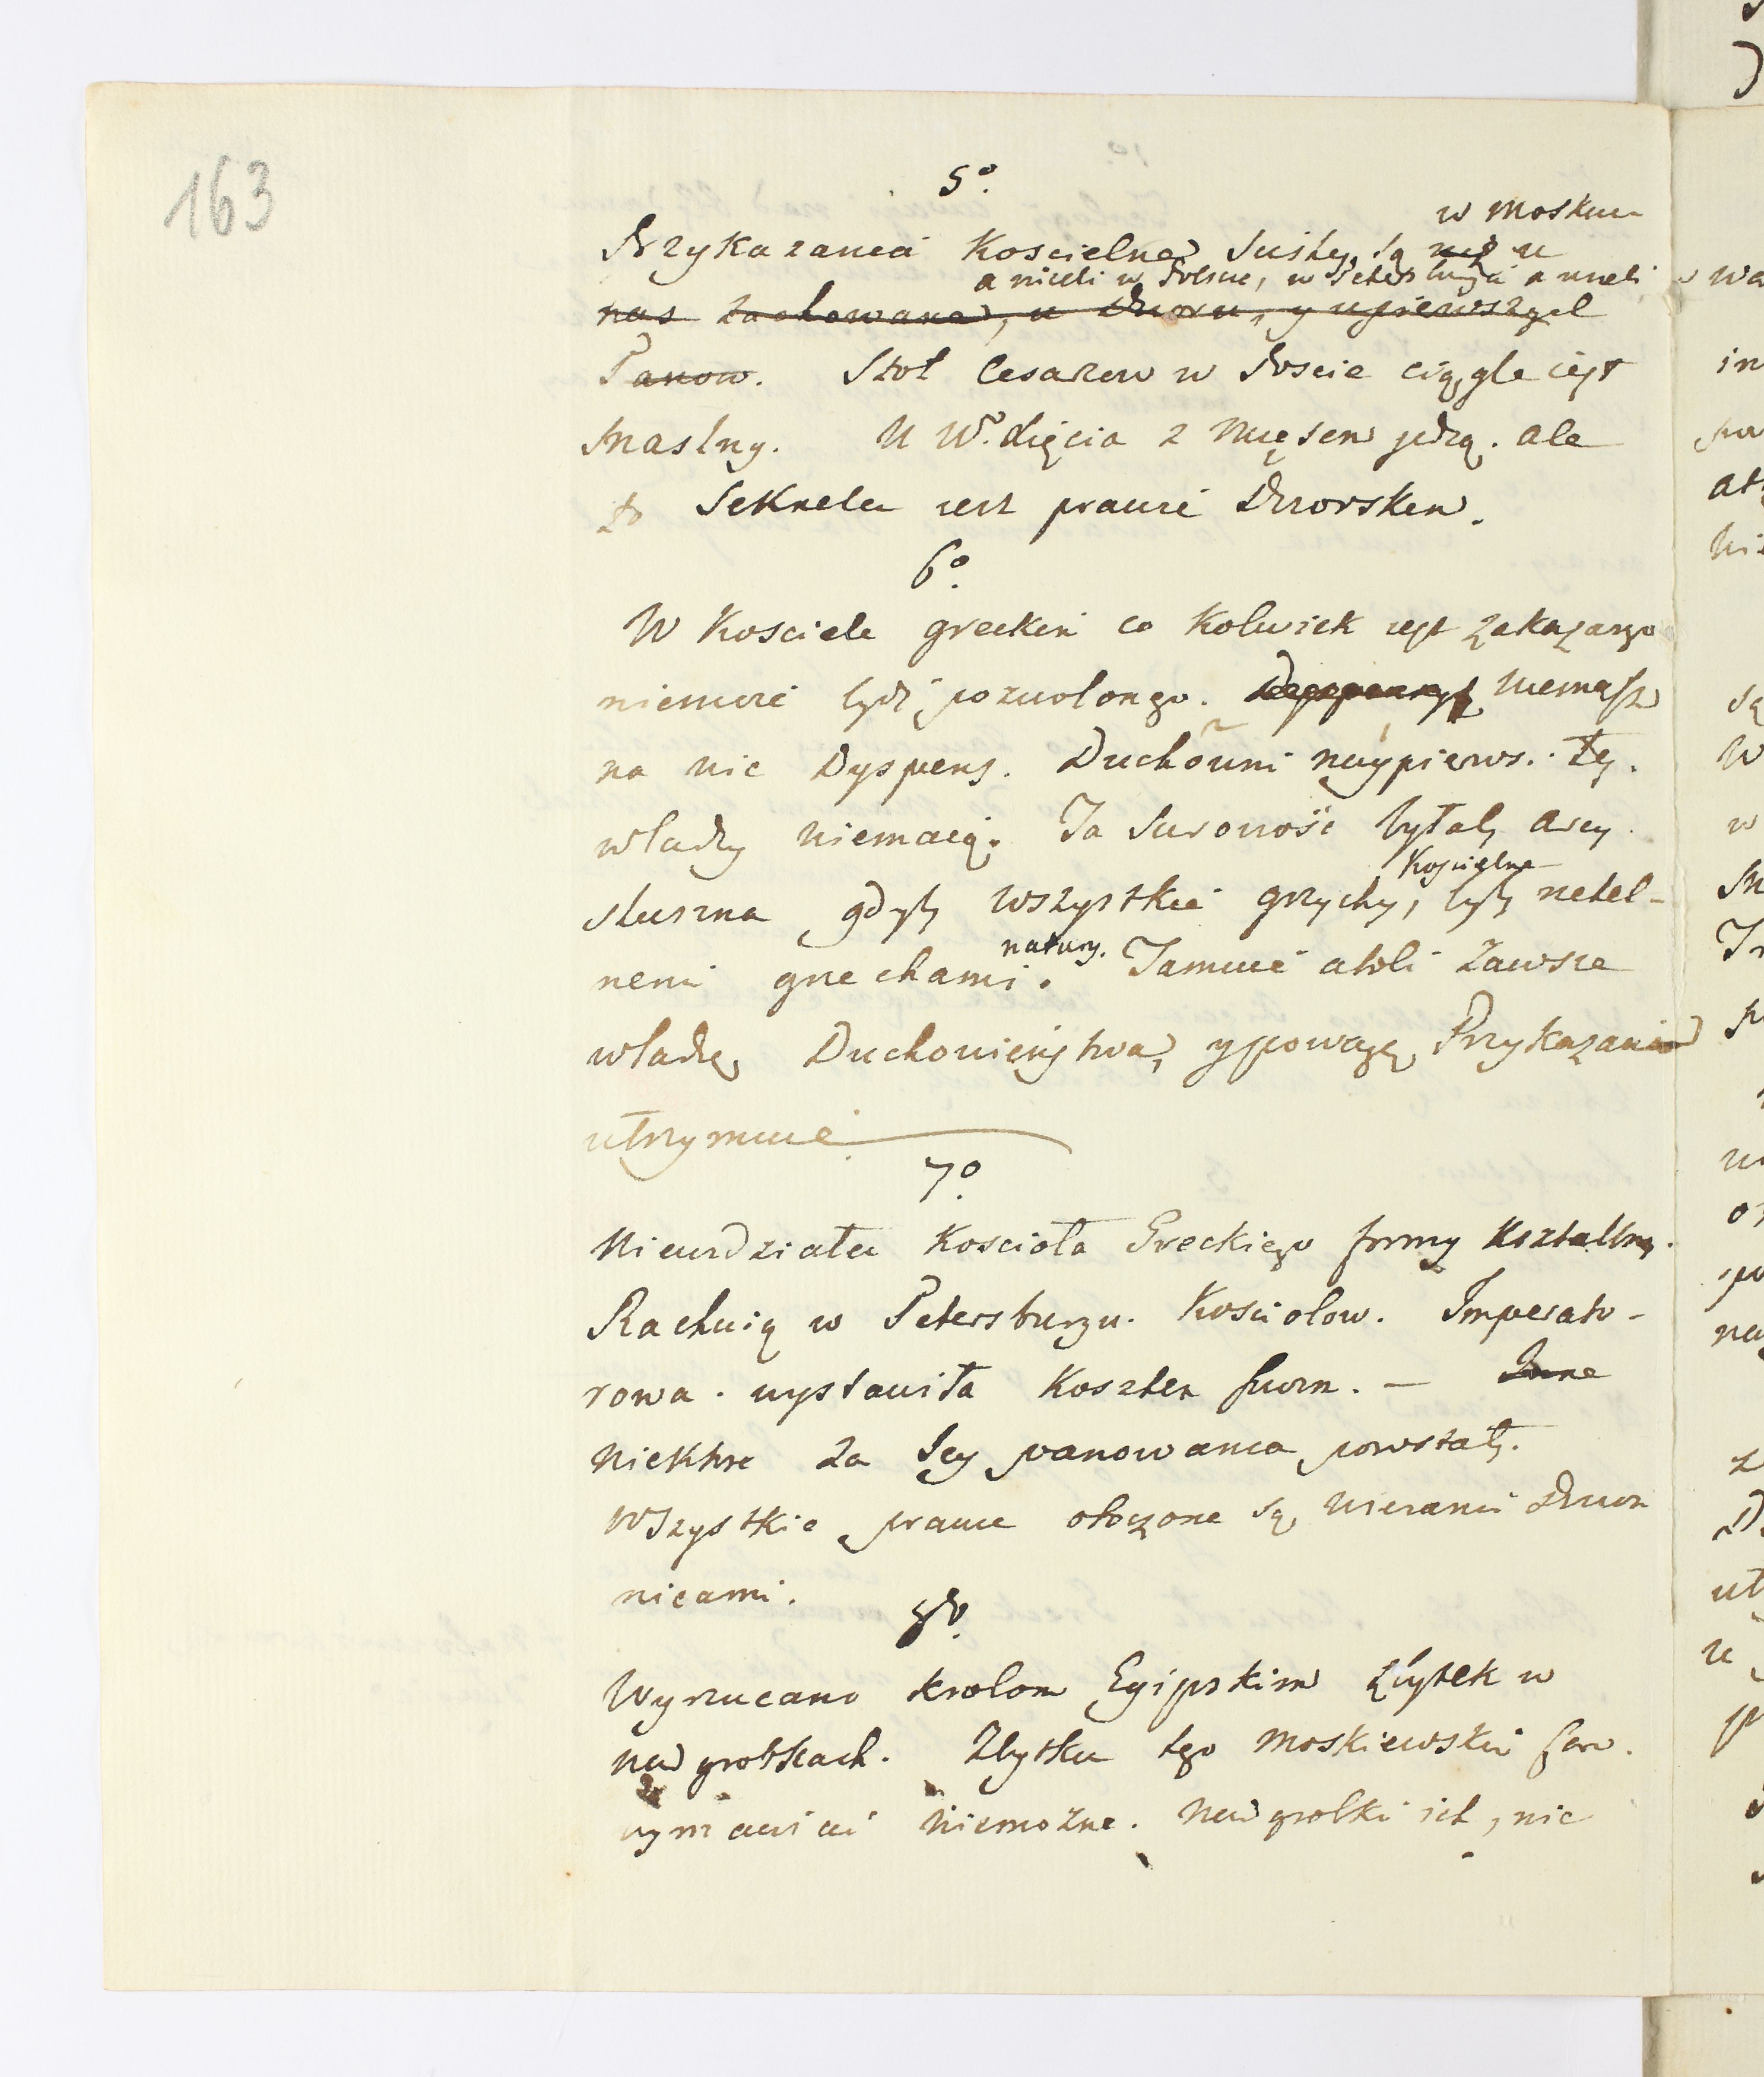 163
5º
w Moskwie
Przykazania Koscielne scisley są niż u
a niżeli w Polsce, w Petersburgu a nizeli
nas zachowane, u Dworu, y u pierwszych
Panow. Stoł Cesarzow w Poscie ciągle iest
maslny. U W. Xięcia z mięsem jedzą. ale
to Sekretem iest prawie Dworskem.
6º
W Kosciele greckim co kolwiek iest zakazanego
niemoże bydź pozwolonego. niemasz
na nic Dyspens. Duchowni naypierws. tey.
władzy niemaią. Ta surowość byłaby arcy
Koscielne
sluszna gdyby wszystkie grzychy, były rzetel-
natury.
nemi grzechami. Tamuie atoli zawsze
władzę Duchowieństwa, y powagę Przykazania
utrzymuie
7º
Niewidziałem Koscioła Greckiego formy kształtney.
Rachuią w Petersburgu. Kosciolow. Imperato-
rowa. wystawiła kosztem swoim. — Inne
niektore za Jey panowania powstały.
Wszystkie prawie otoczone są wieżami Dzwon
nicami.
8vo.
Wyrzucano krolom Egipskim zbytek w
nadgrobkach. Zbytku tego Moskiewskim Carom.
wymawiać niemożna. Nadgrobki ich, nic